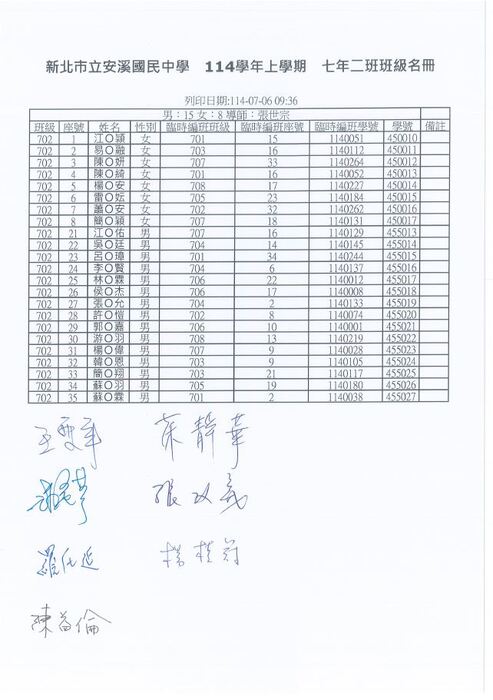 新北市立安溪國民中學 114學年上學期 七年二班班級名冊
列印日期:114-07-06 09:36
男:15 女:8 導師:張世宗
班級 座號 姓名 性別 臨時編班班級 臨時編班座號 臨時編班學號 學號 備註
702 1 江O穎 女 701 15 1140051 450010
702 2 易O融 女 703 16 1140112 450011
702 3 陳O妍 女 707 33 1140264 450012
702 4 陳O綺 女 701 16 1140052 450013
702 5 楊O安 女 708 17 1140227 450014
702 6 雷O妘 女 705 23 1140184 450015
702 7 蕭O安 女 702 32 1140262 450016
702 8 簡O穎 女 707 18 1140131 450017
702 21 江O佑 男 707 16 1140129 455013
702 22 吳O廷 男 704 14 1140145 455014
702 23 呂O瑋 男 701 34 1140244 455015
702 24 李O賢 男 704 6 1140137 455016
702 25 林O霖 男 706 22 1140012 455017
702 26 侯O杰 男 706 17 1140008 455018
702 27 張O允 男 704 2 1140133 455019
702 28 許O愷 男 702 8 1140074 455020
702 29 郭O嘉 男 706 10 1140001 455021
702 30 游O羽 男 708 13 1140219 455022
702 31 楊O偉 男 707 9 1140028 455023
702 32 韓O恩 男 703 9 1140105 455024
702 33 簡O翔 男 703 21 1140117 455025
702 34 蘇O羽 男 705 19 1140180 455026
702 35 蘇O霖 男 701 2 1140038 455027
葉靜華
張以義
陳益倫